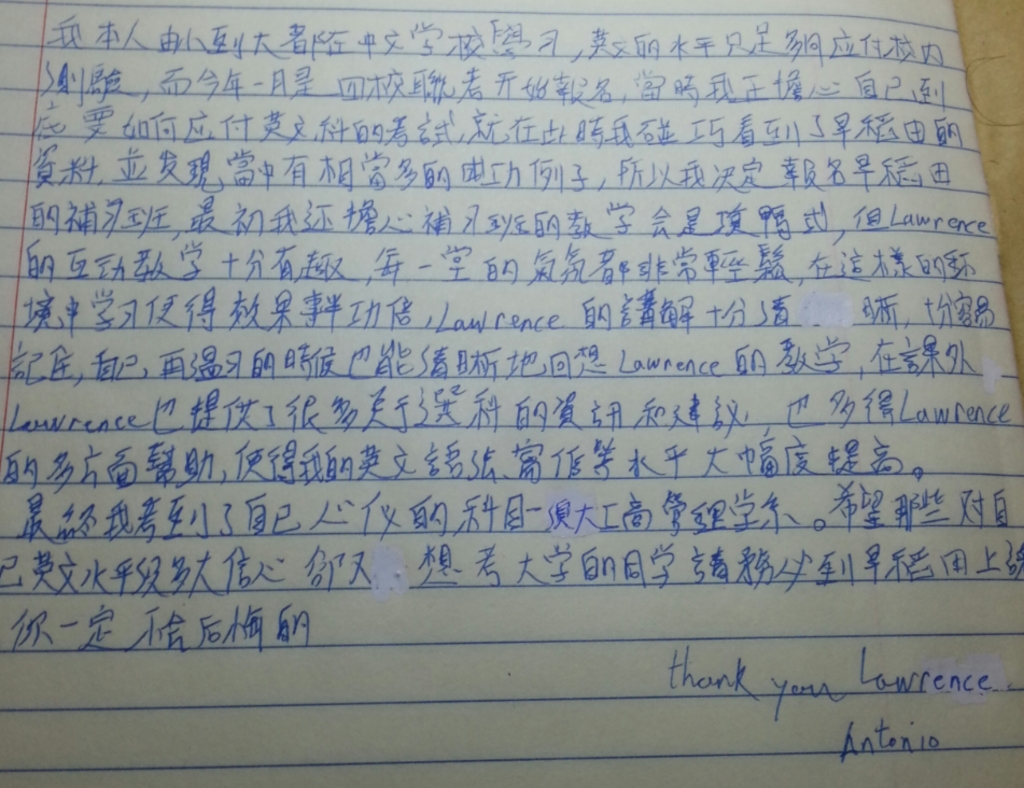 我本人由小到大都在中文学校學习,英文的水平只足夠应付校内
測驗,而今年一月是四校聯考开始報名,當時我正擔心自己到
底要如何应付英文科的考試,就在此時我碰巧看到了早稻田的
資料,並发現當中有相當多的成功例子,所以我决定報名早稻田
的補习班,最初我还擔心補习班的教学会是填鴨式,但Lawrence
的互动教学十分有趣,每一堂的氣氛都非常輕鬆,在這樣的环
境中学习使得效果事半功倍,Lawrence的講解十分清晰,十分容易
記住,自己再温习的時候也能清晰地回想Lawrence的教学,在課外
Lawrence也提供了很多关于選科的資訊和建议,也多得Lawrence
的多方面幫助,使得我的英文語法、寫作等水平大幅度提高。
最終我考到了自己心仪的科目—澳大工商管理学系。希望那些对自
己英文水平没多大信心卻又想考大学的同学請務必到早稻田上課
你一定不会后悔的
thank you Lawrence.
Antonio